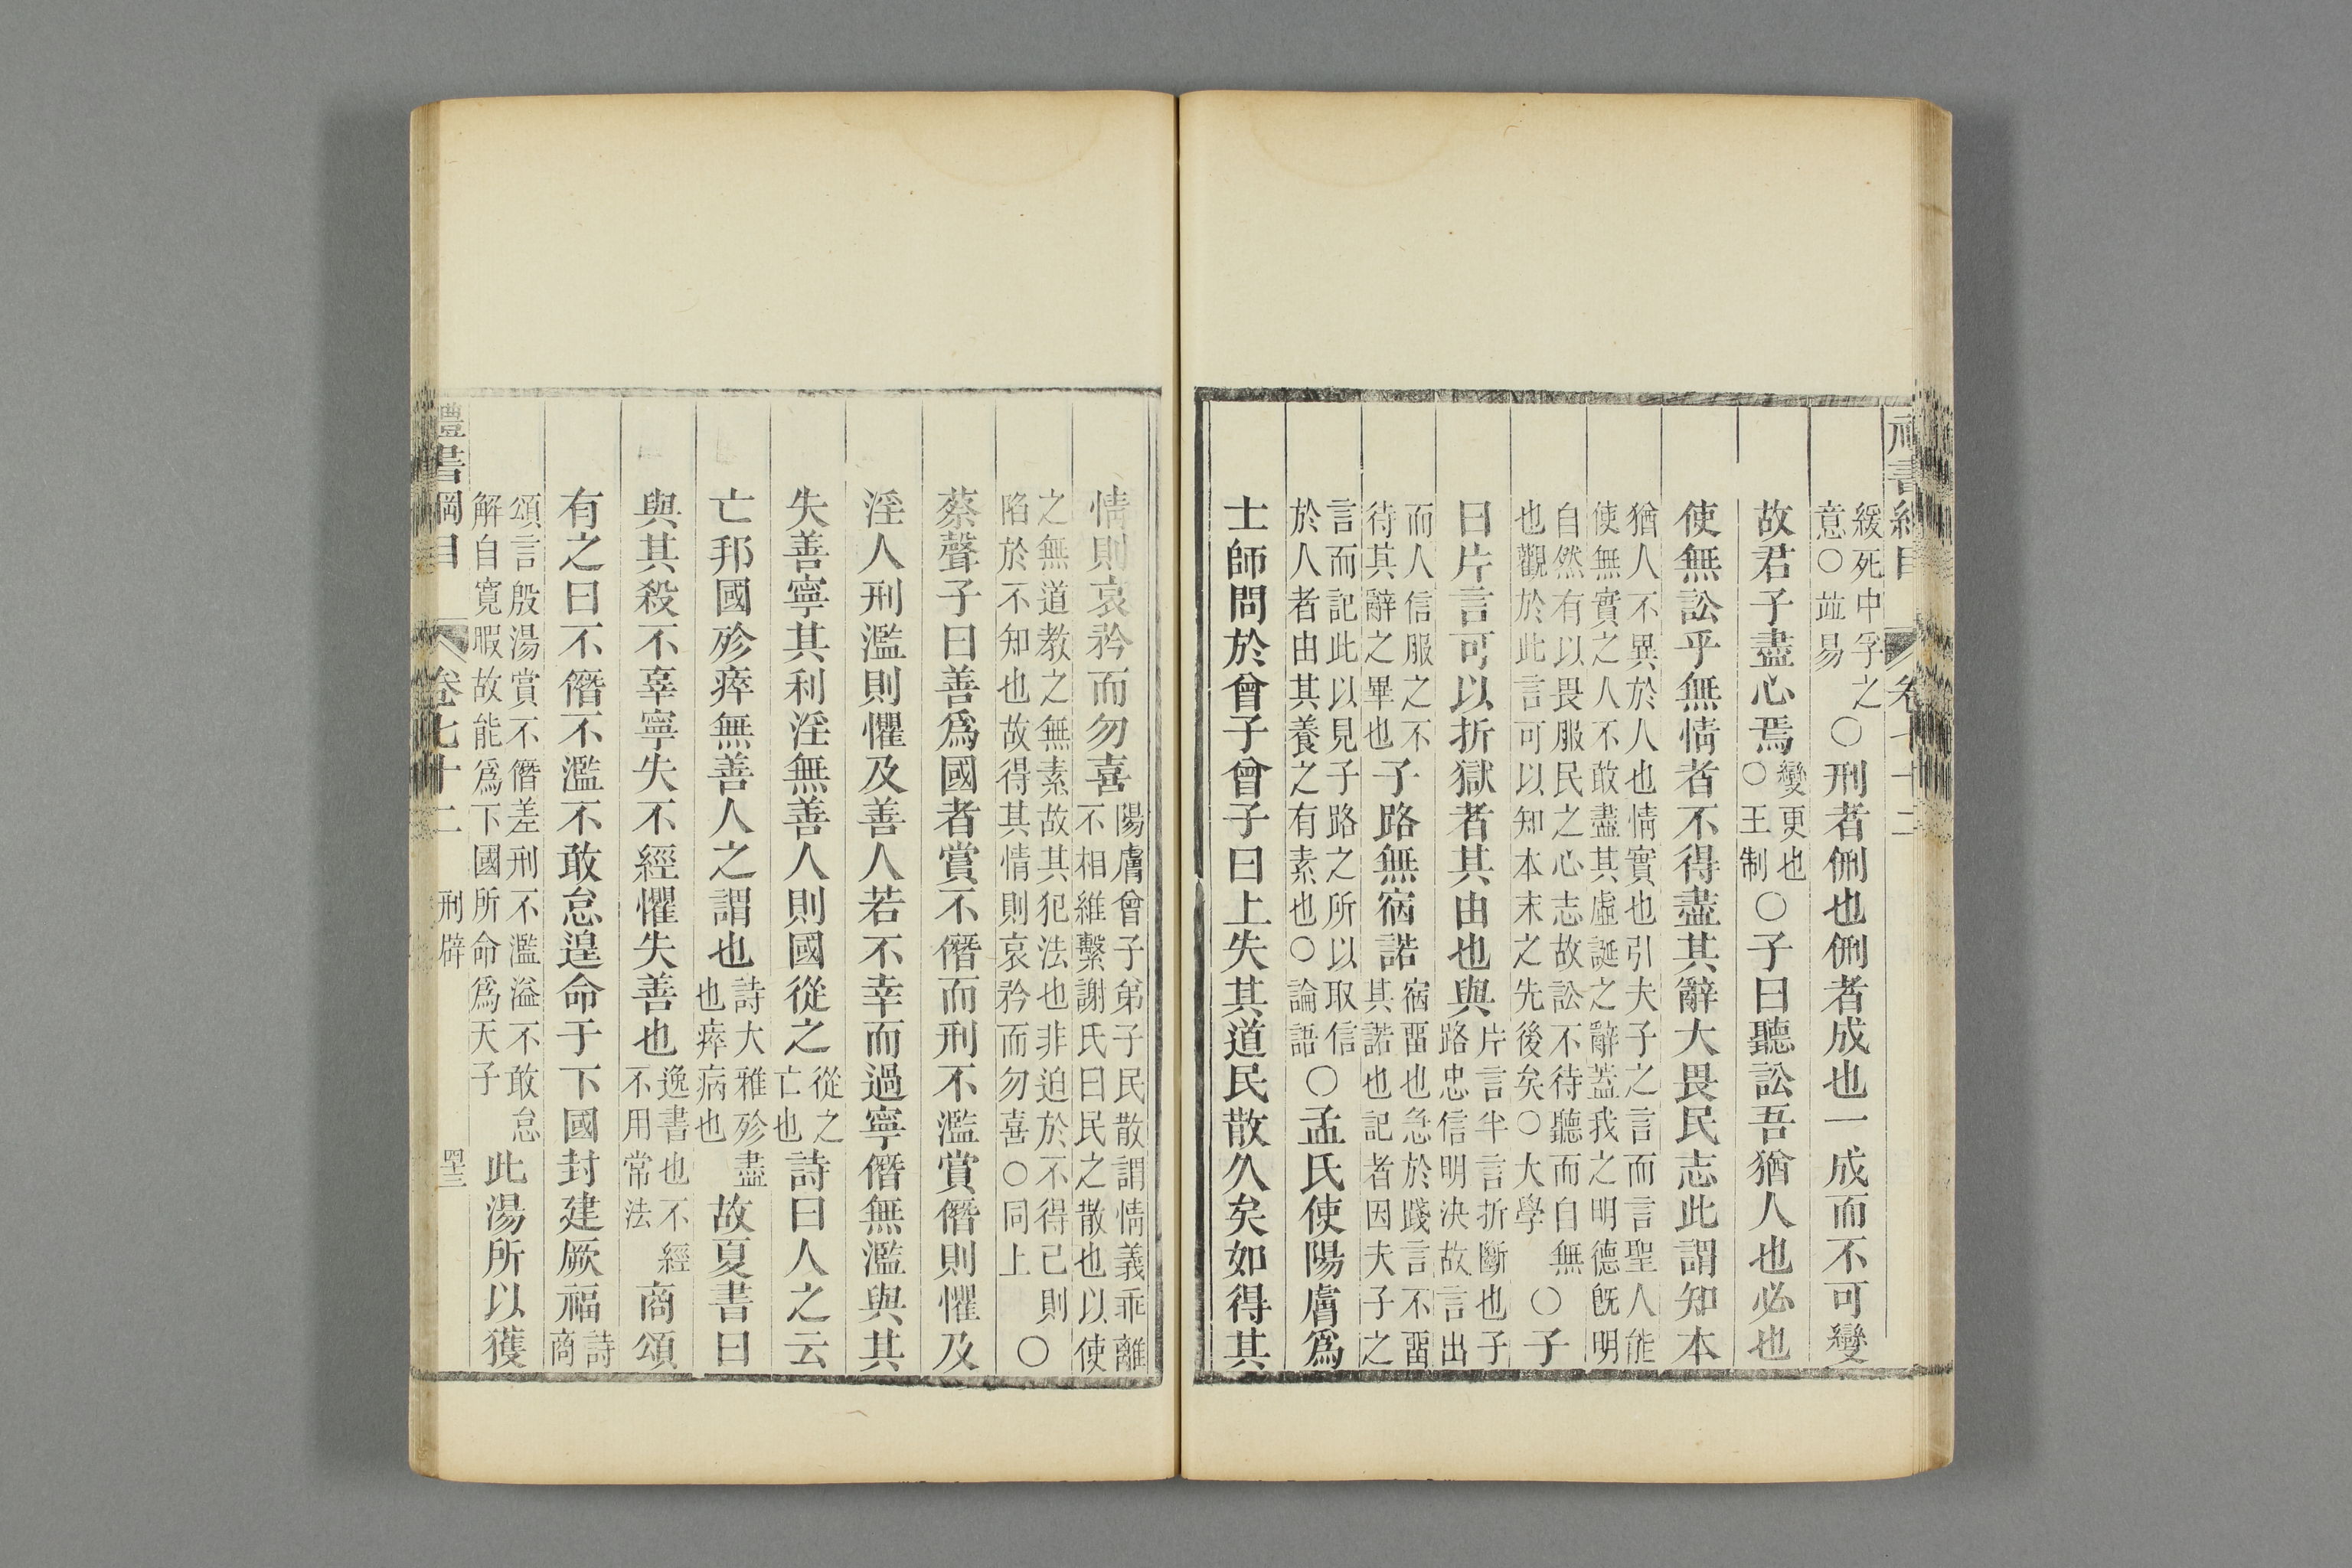 緩死中孚之
意○並易
○刑者侀也侀者成也一成而不可變
故君子盡心焉
變更也
○王制
○子曰聽訟吾猶人也必也
使無訟乎無情者不得盡其辭大畏民志此謂知本
猶人不異於人也情實也引夫子之言而言聖人能
使無實之人不敢盡其虛誕之辭蓋我之明德旣明
自然有以畏服民之心志故訟不待聽而自無
也觀於此言可以知本末之先後矣○大學
○子
曰片言可以折獄者其由也與
片言半言折斷也子
路忠信明決故言出
而人信服之不
待其辭之畢也
子路無宿諾
宿畱也急於踐言不畱
其諾也記者因夫子之
言而記此以見子路之所以取信
於人者由其養之有素也○論語
○孟氏使陽膚爲
士師問於曾子曾子曰上失其道民散久矣如得其
情則哀矜而勿喜
陽膚曾子弟子民散謂情義乖離
不相維繫謝氏曰民之散也以使
之無道教之無素故其犯法也非迫於不得已則
陷於不知也故得其情則哀矜而勿喜○同上
○
蔡聲子曰善爲國者賞不僭而刑不濫賞僭則懼及
淫人刑濫則懼及善人若不幸而過寧僭無濫與其
失善寧其利淫無善人則國從之
從之
亡也
詩曰人之云
亡邦國殄瘁無善人之謂也
詩大雅殄盡
也瘁病也
故夏書曰
與其殺不辜寧失不經懼失善也
逸書也不經
不用常法
商頌
有之曰不僭不濫不敢怠遑命于下國封建厥福
詩
商
頌言殷湯賞不僭差刑不濫溢不敢怠
解自寬暇故能爲下國所命爲天子
此湯所以獲
禮書綱目 卷七十二 刑辟